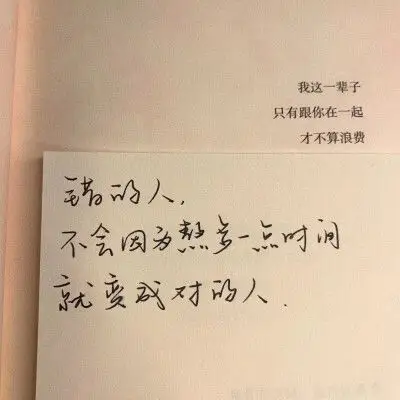 我这一辈子
只有跟你在一起
才不算浪费
错的人，
不会因为熬多一点时间
就变成对的人.